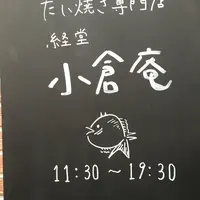 たい焼き専門店
経堂
小倉庵
11:30～19:30